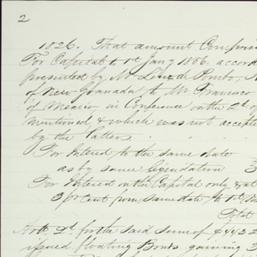 2
1826. That amount Comprisi
For Capital to 1st Jany 1886. accord
presented by Mr. Lino de Pombo, M
of New Granada to Mr. Francisco
of Mexico, in Conference on the 2d of
mentioned & which was not accept
by the latter.
For Interest to the same date
as by same liquidation 3
For Interest on the Capital only at
3 pr Cent from same date to 1st M
Total
Note, Dr. for the said sum of
issued floating Bonds, gaining 3